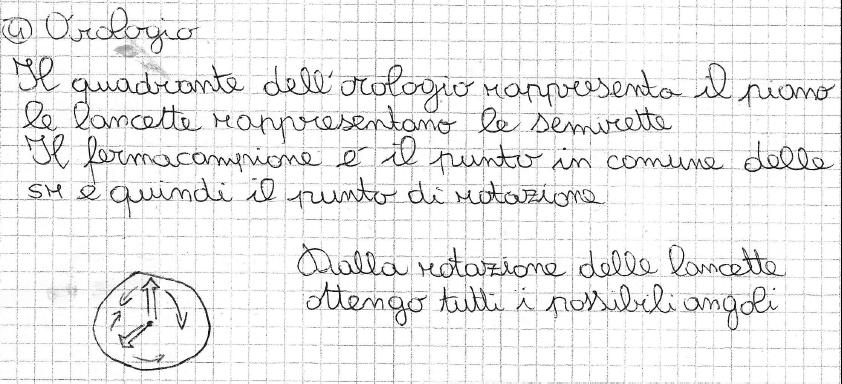 a) Orologio
Il quadrante dell'orologio rappresenta il piano
le lancette rappresentano le semirette
Il fermacampione è il punto in comune delle
sr e quindi il punto di rotazione
Dalla rotazione delle lancette
ottengo tutti i possibili angoli